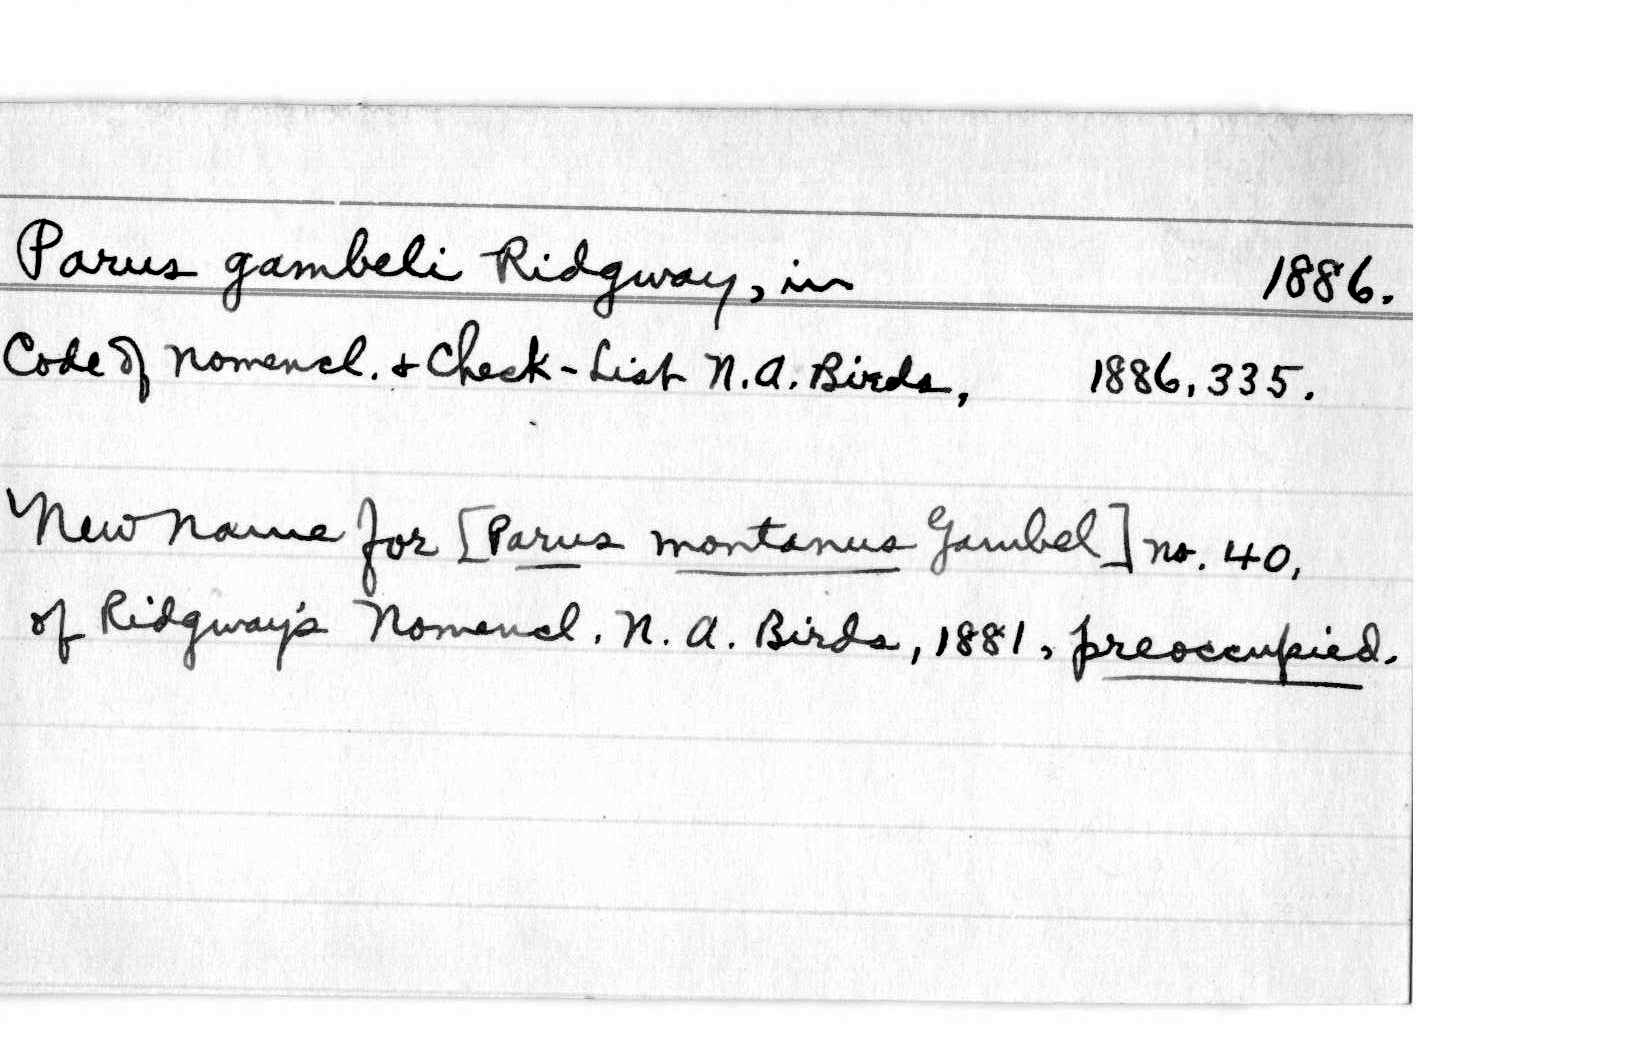 Parus gambeli Ridgway, in 1886.
Code of Nomencl. & Check-List N.A. Birds, 1886, 335.
New name for [Parus montanus Gambel] no. 40,
of Ridgway's Nomencl. N. A. Birds, 1881, preoccupied.